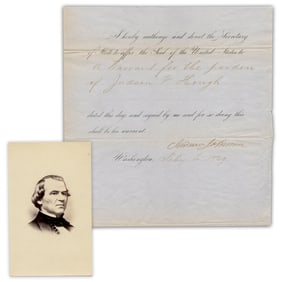 I hereby authorize and direct the Secretary
of State to affix the Seal of the United States to
a Warrant for the pardon
of Judson
dated this day and signed by me and for so doing this
shall be his warrant.
Andrew Johnson
Washington,